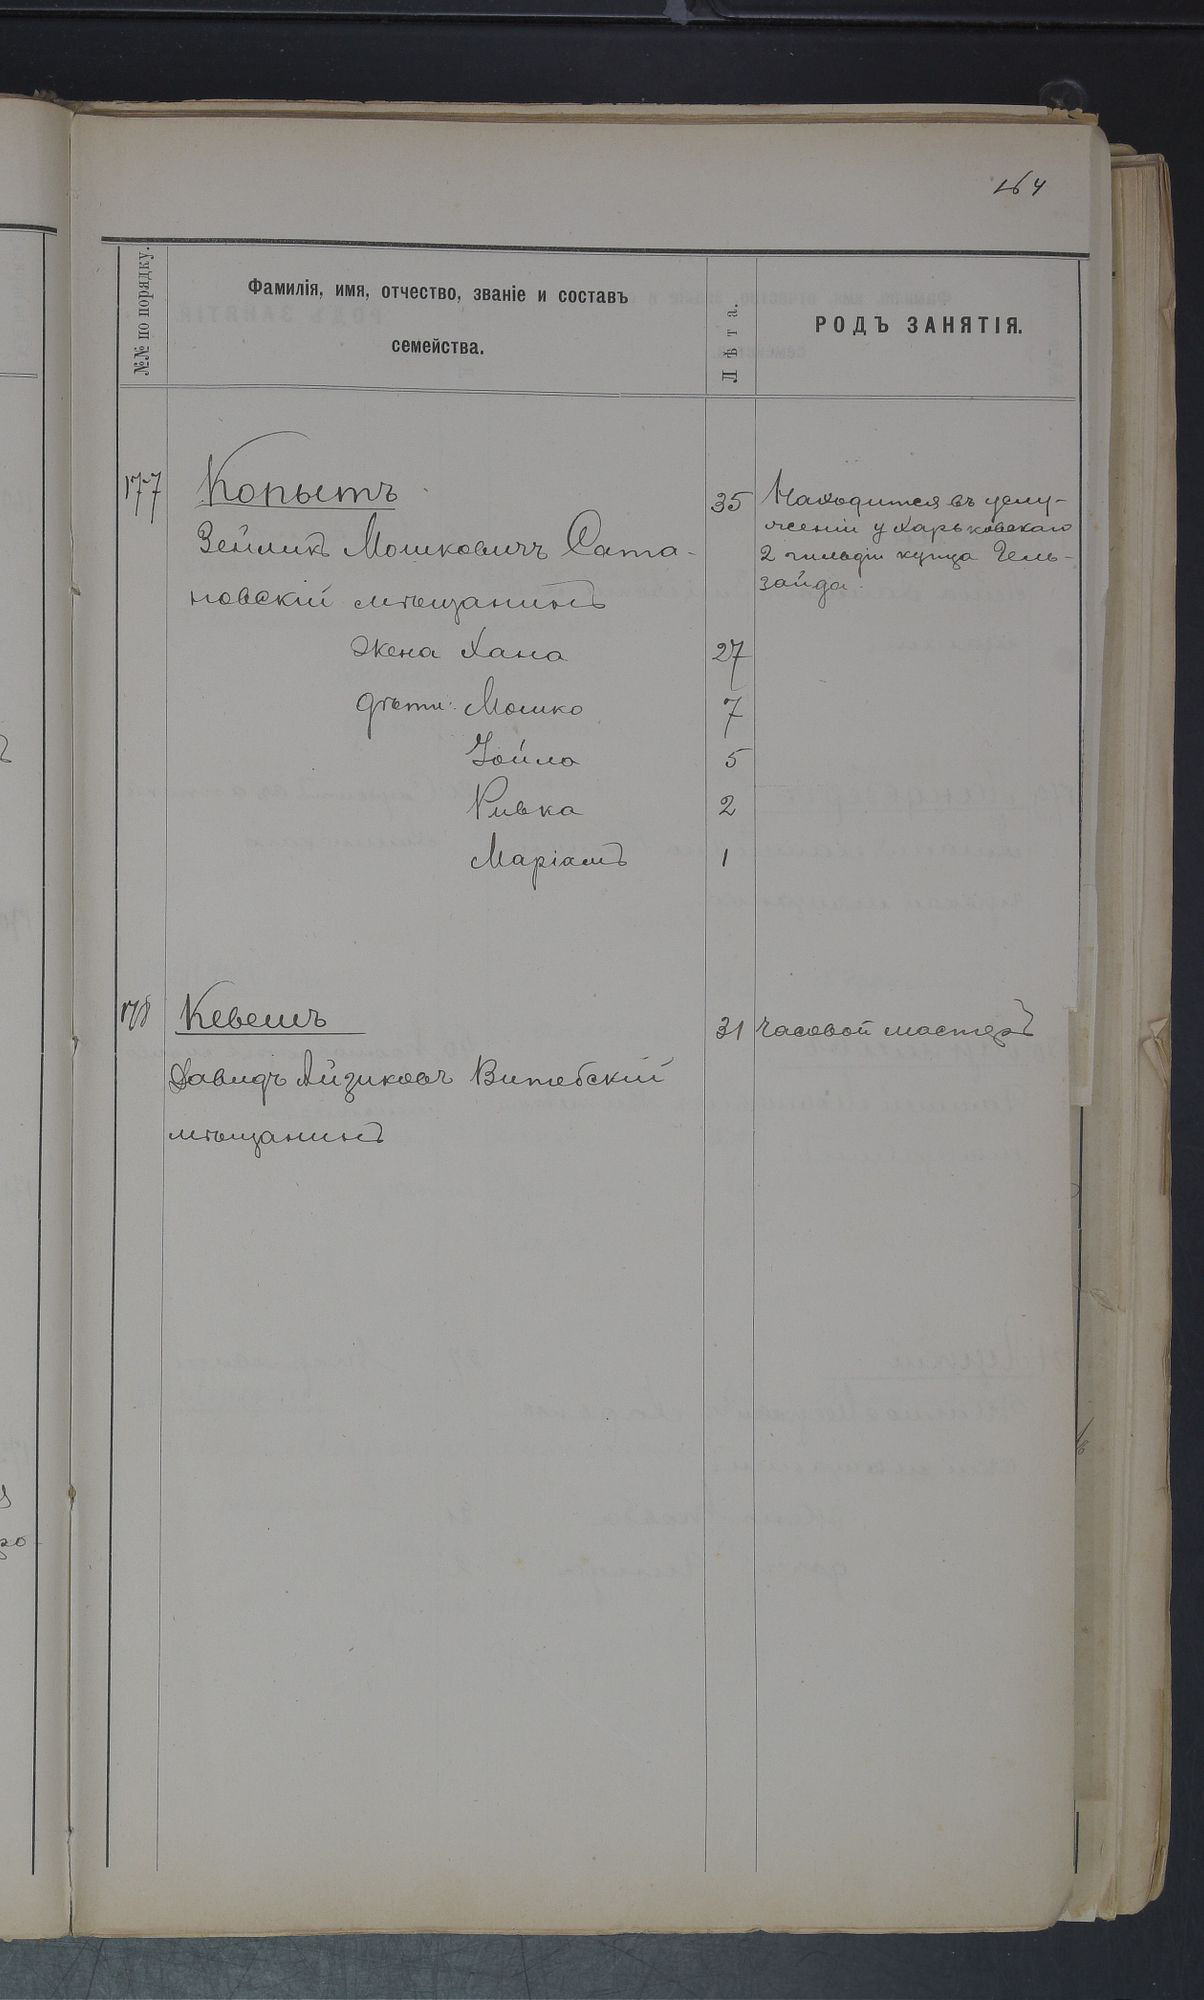 164
№№ по порядку.
Фамилія, имя, отчество, званіе и составъ
семейства.
Лѣта.
РОДЪ ЗАНЯТІЯ.
177
Копытъ
35
Находится въ услу-
женіи у Харьковскаго
2 гильдіи купца Гель-
зайда.
Зейликъ Мошковичъ Сата-
новскій мѣщанинъ
жена Хана
27
дѣти: Мошко
7
5
Ривка
2
Маріамъ
1
178
Кевешъ
31
часовой мастеръ
Давидъ Айзиковъ Витебскій
мѣщанинъ